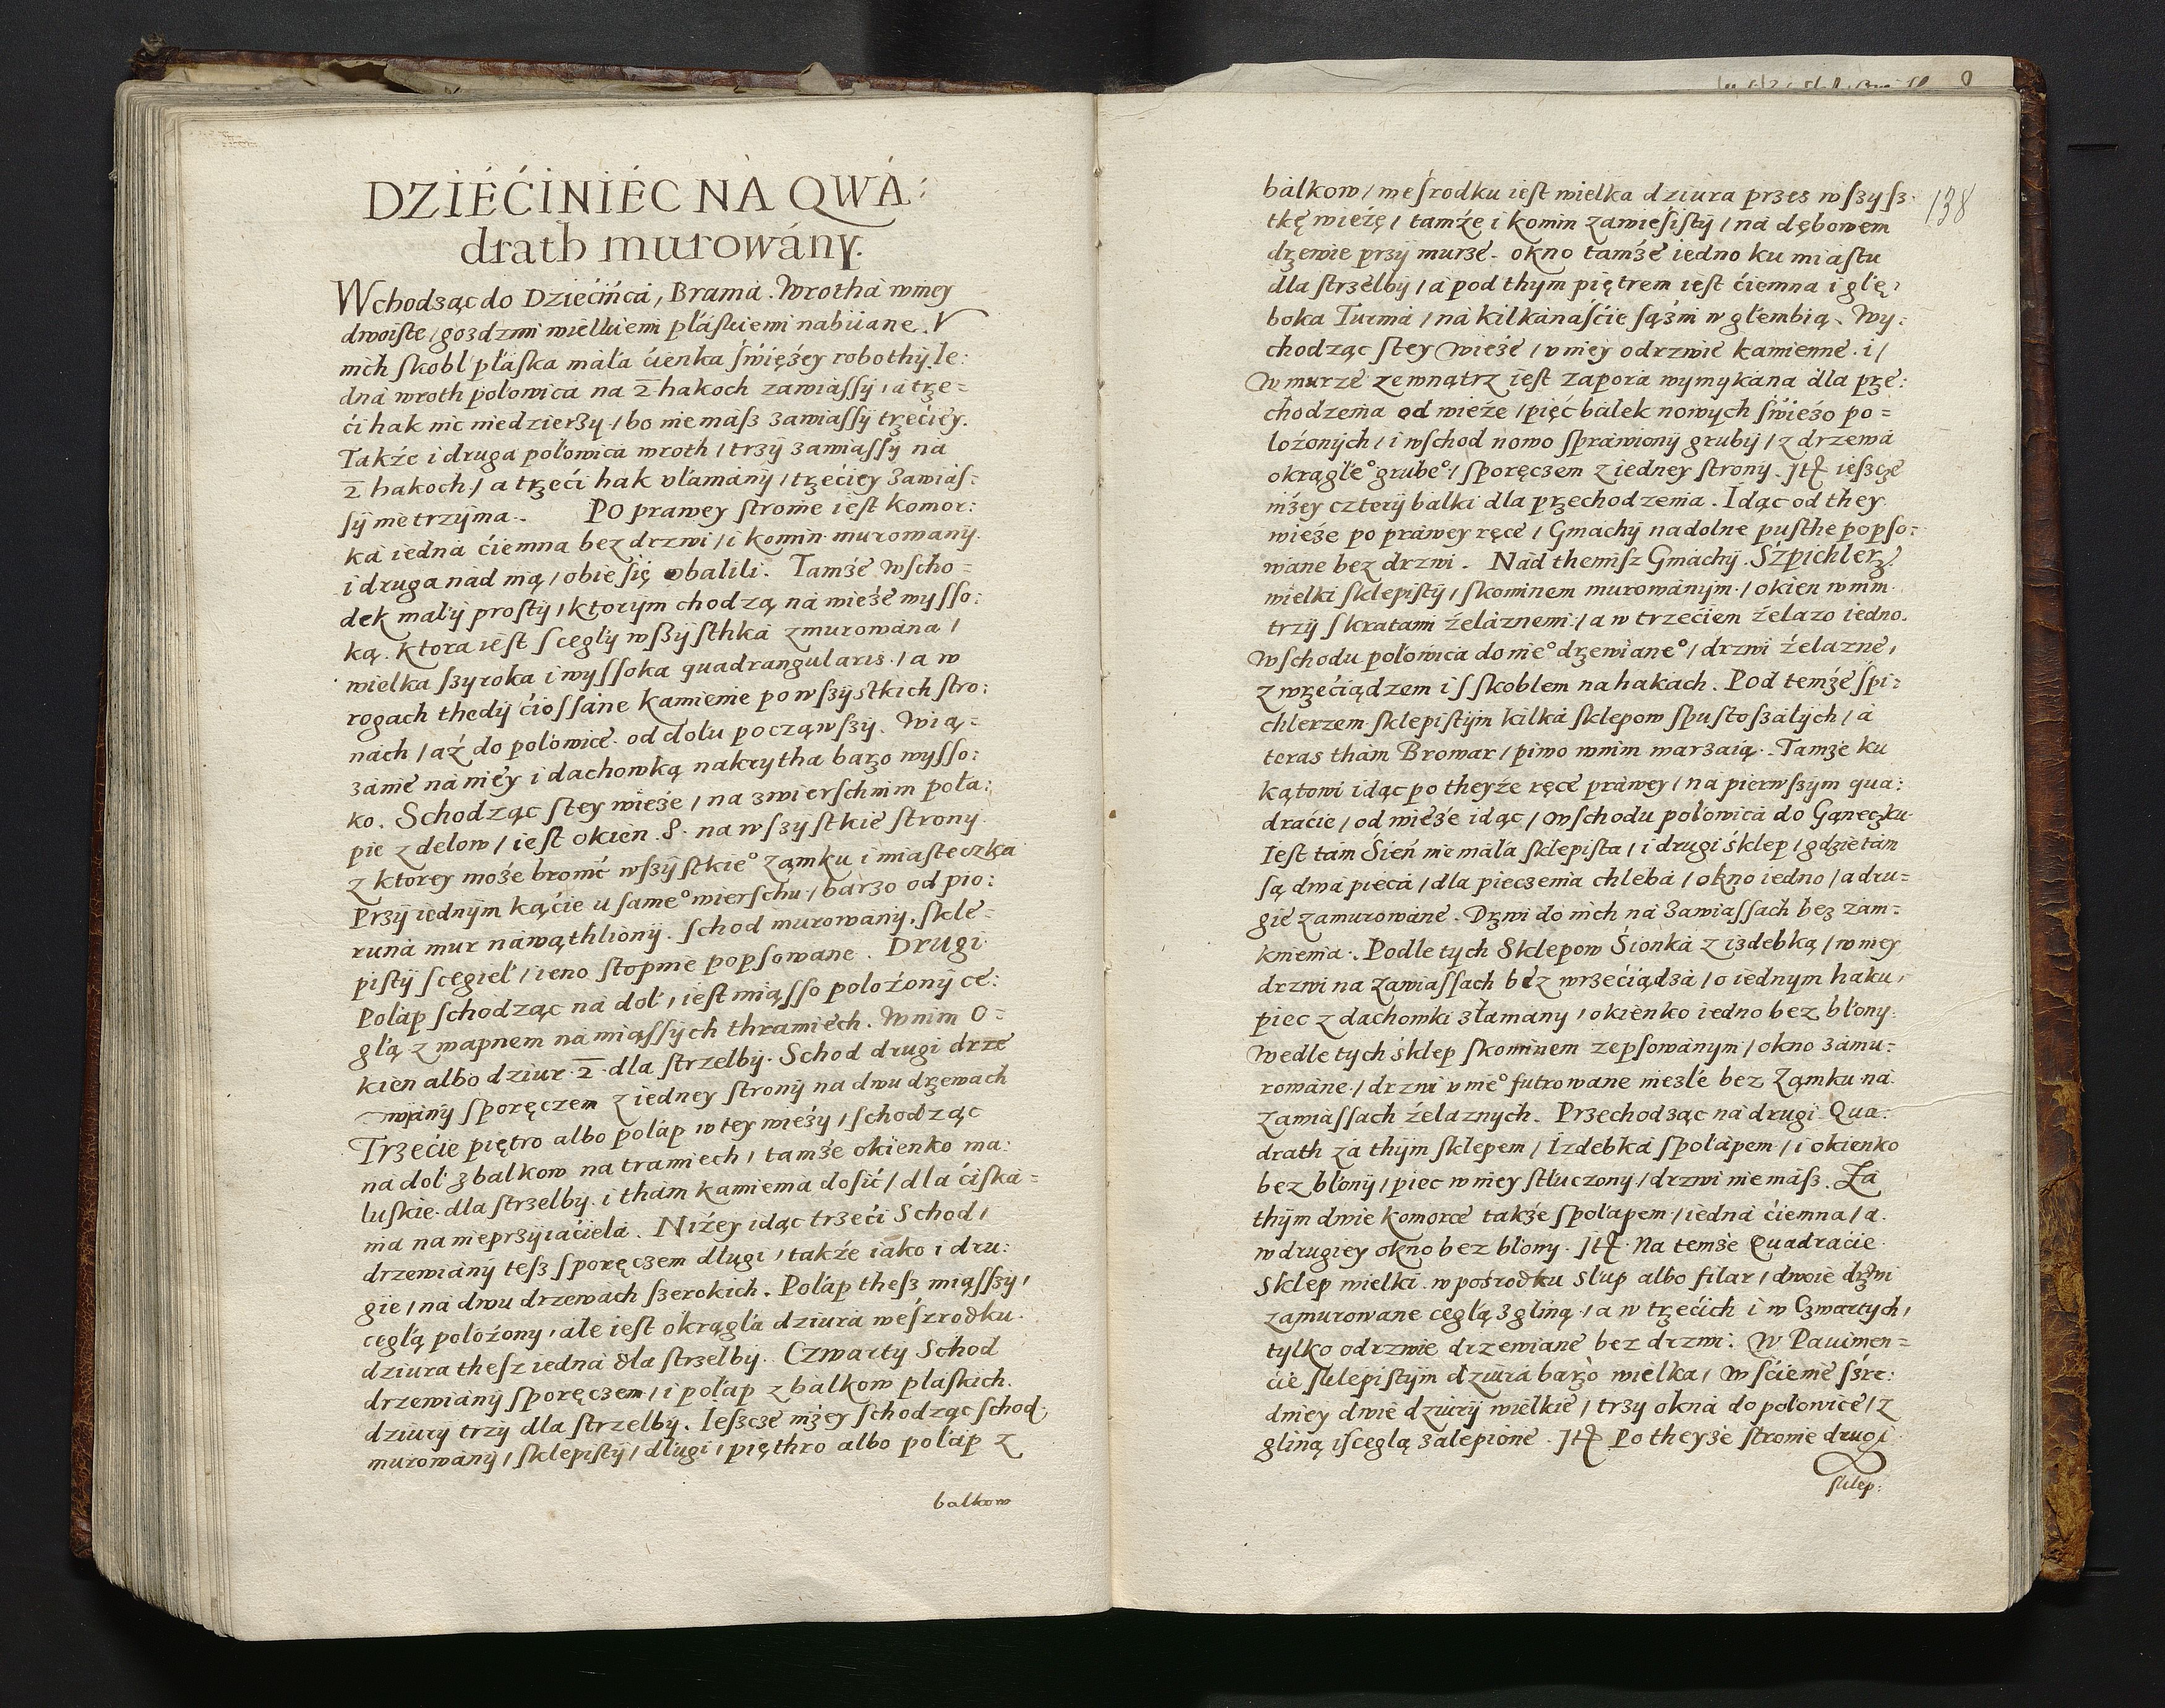 DZIÉĆINIÉC NÀ QWÁ:
drath murowány.
Wchodsąc do Dziećińcá, Bramá. Wrothá wniey
dwoiste / gozdzmi wielkiemi płáskiemi nabiiane. V
nich skobl płaska máła ćienka świężey robothÿ. Ie:
dná wroth połowicá na 2 hakoch zawiassÿ, á trze=
ći hak nic niedzierży, bo niemász zawiassÿ trzećiey.
Także i druga połowicá wroth / trzÿ zawiassÿ ná
2 hakoch / a trzeći hak vłamánÿ / trzećiey zawias:
sÿ nie trzÿma. PO prawey stronie iest komor:
ká iedná ćiemna bez drzwi / i komin murowanÿ.
i druga nád nią / obie się obalili. Tamże wscho=
dek małÿ prostÿ / ktorÿm chodzą ná wieże wysso:
ką. ktora iest s cegłÿ wszÿsthká zmurowána /
wielka szyroka i wyssoka quadrangularis / a w
rogach thedÿ ćiossáne kamienie po wszÿstkich stro:
nach / aż do połowice od dołu począwszÿ. Wią=
zánie ná niey i dachowką nakrytha barzo wysso:
ko. Schodząc stey wieże / na zwierschnim poła:
pie z delow / iest okien .8. na wszystkie strony
z ktorey może bronić wszÿstkie° ząmku i miasteczka
Przÿ iednÿm kąćie u same° wierschu / bárzo od pio:
runá mur náwąthlionÿ. schod murowánÿ, skle=
pistÿ s cegieł / ieno stopnie popsowane. Drugi
Połáp schodząc ná doł, iest miąsso położonÿ ce:
głą z wapnem ná miąssÿch thramiech. W nim o=
kien albo dziur 2 dla strzelbÿ. Schod drugi drze
wiánÿ sporęczem z iedney stronÿ na dwu drzewach
Trzećie piętro albo połap w tey wieżÿ / schodząc
na doł z balkow na tramiech / tamże okienko ma:
luskie dla strzelbÿ. i thám kamienia dosić / dla ćiska=
nia na nieprzÿiaćielá. Niżey idąc trzeći Schod /
drzewiány tesz sporęczem długi / także iako i dru:
gie / ná dwu drzewách szerokich. Połap thesz miąsszÿ /
cegłą położony, ale iest okrągła dziurá weśrzodku
dziura thesz iedná dla strzelbÿ. Czwarty Schod
drzewiánÿ sporęczem / i połap z bálkow płaskich.
dziury trzÿ dla strzelbÿ. Ieszcze niżey schodząc schod
murowánÿ / sklepistÿ / długi / pięthro albo połap z
balkow
138
bálkow / weśrodku iest wielka dziura przes wszÿsz
tkę wieżę / tamże i komin zawieśistÿ / ná dębowem
drzewie przÿ murze. okno tamże iedno ku miastu
dla strzelbÿ / á pod thym piętrem iest ćiemna i głę,
boka Turmá / ná kilkánaśćie sążni w głembią. Wy:
chodząc stey wieże / v niey odrzwie kamienne. i /
W murze zewnątrz iest zapora wymykána dla prze:
chodzenia od wieże / pięć balek nowych świeżo po=
łożonych / i wschod nowo spráwionÿ grubÿ / z drzewá
okrągłe° grube° / sporęczem z iedney strony. Itē ieszcze
niżey czterÿ bálki dla przechodzenia. Idąc od they
wieże po práwey ręce / Gmachÿ nadolne pusthe popso:
wane bez drzwi. Nád themisz Gmachÿ. Śżpichlerz
wielki sklepistÿ, skominem murowánÿm / okien w nim
trzÿ s kratami żeláznemi / a w trzećiem żelazo iedno.
Wschodu połowica donie° drzewiáne° / drzwi żelazne,
z wrzećiądzem i s skoblem na hakách. Pod temże śpi:
chlerzem sklepistÿm kilká sklepow spustoszałych / á
teras thám Browar / piwo w nim warzaią. Tamże ku
kątowi idąc po theyże ręce práwey / na pierwszÿm qua:
draćie / od wieże idąc / wschodu połowicá do Gąneczku
Iest tám Śień niemáła sklepista / i drugi śklep / gdzie tám
są dwá piecá / dla pieczenia chlebá / okno iedno / a dru=
gie zamurowáne. Drzwi do nich na zawiassach bez zám:
knienia. Podle tych Sklepow Śionká z izdebką / w niey
drzwi na zawiassach bez wrzećiądzá / o iednym haku,
piec z dachowki złamány / okienko iedno bez błony
Wedle tych śklep skominem zepsowánym / okno zamu:
rowáne / drzwi v nie° futrowane niezłe bez ząmku ná
zawiassach żelaznych. Przechodząc ná drugi Qua:
drath zá thÿm sklepem / Izdebká społápem / i okienko
bez błonÿ / piec w niey stłuczony / drzwi niemász. Zá
thÿm dwie komorce także społapem / iedná ćiemna / a
w drugiey okno bez błony. Itē Na temże Quadraćie
Sklep wielki w pośrodku słup albo filar / dwoie drzwi
zamurowane cegłą z gliną / a w trzećich i w Czwartych,
tylko odrzwie drzewiane bez drzwi. W Pauimen=
ćie sklepistÿm dziurá barzo wielka / W śćienie śźre:
dniey dwie dziurÿ wielkie / trzy okná do połowice / z
gliną i s cegłą zalepione. Itē Po theyże stronie drugi
sklep: